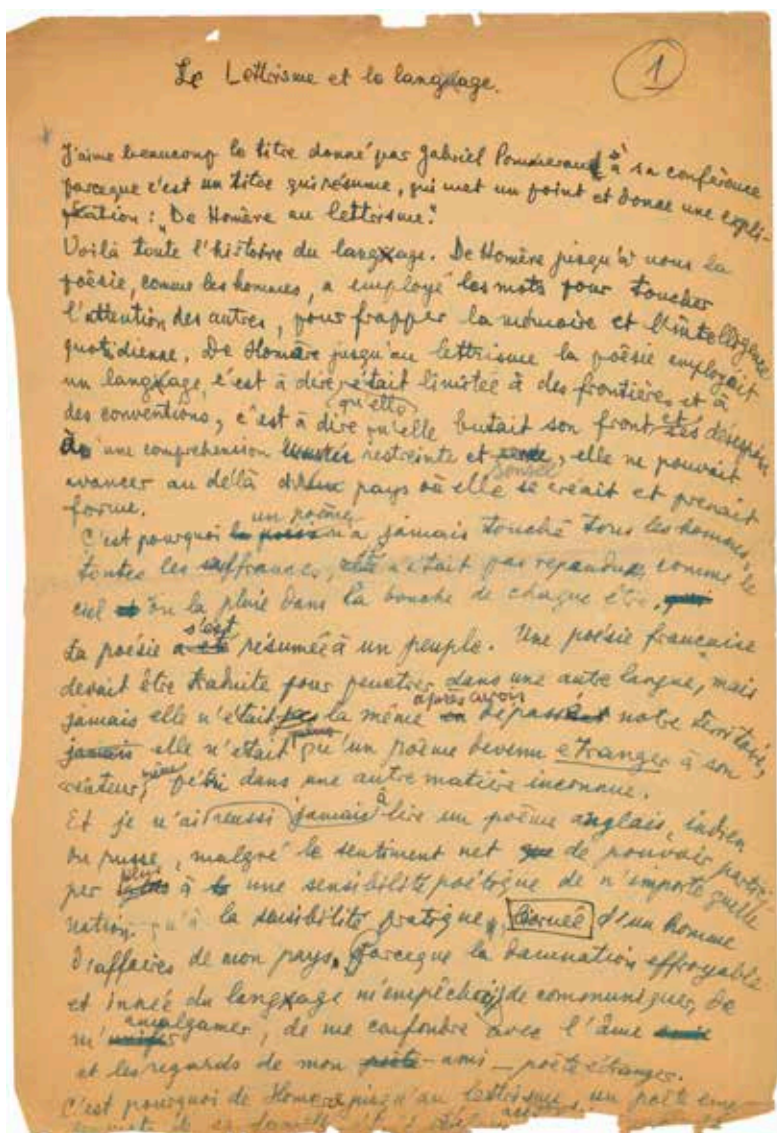 Le Lettrisme et le langage.
1
J'aime beaucoup le titre donné par Gabriel Pommerand à sa conférence
parceque c'est un titre qui résume, qui met un point et donne une expli-
cation : "De Homère au lettrisme."
Voilà toute l'histoire du langage. De Homère jusqu'à nous la
poésie, comme les hommes, a employé les mots pour toucher
l'attention des autres, pour frapper la mémoire et l'intelligence
quotidienne. De Homère jusqu'au lettrisme la poésie employait
un langage, c'est à dire était limitée à des frontières et à
des conventions, c'est à dire qu'elle butait son front et ses désespoirs
à une comprehension restreinte et, elle ne pouvait
avancer au délà du pays où elle se créait et prenait
forme.
C'est pourquoi un poème n'a jamais touché tous les hommes,
toutes les souffrances, n'était pas repandu comme le
ciel ou la pluie dans la bouche de chaque être.
La poésie s'est résumée à un peuple. Une poésie française
devait être traduite pour penetrer dans une autre langue, mais
jamais elle n'était la même après avoir dépassé notre territoire,
elle n'était qu'un poème devenu etranger à son
créateur, pétri dans une autre matière inconnue.
Et je n'ai reussi jamais à lire un poème anglais, indien
ou russe, malgré le sentiment net de pouvoir partici-
per plus à une sensibilité poétique de n'importe quelle
nation qu'à la sensibilité pratique, bornée d'un homme
d'affaires de mon pays. Parceque la damnation effroyable
et innée du langage m'empêchait de communiquer, de
m'amalgamer, de me confondre avec l'âme
et les regards de mon ami – poète étranger.
C'est pourquoi de Homère jusqu'au lettrisme, un poète